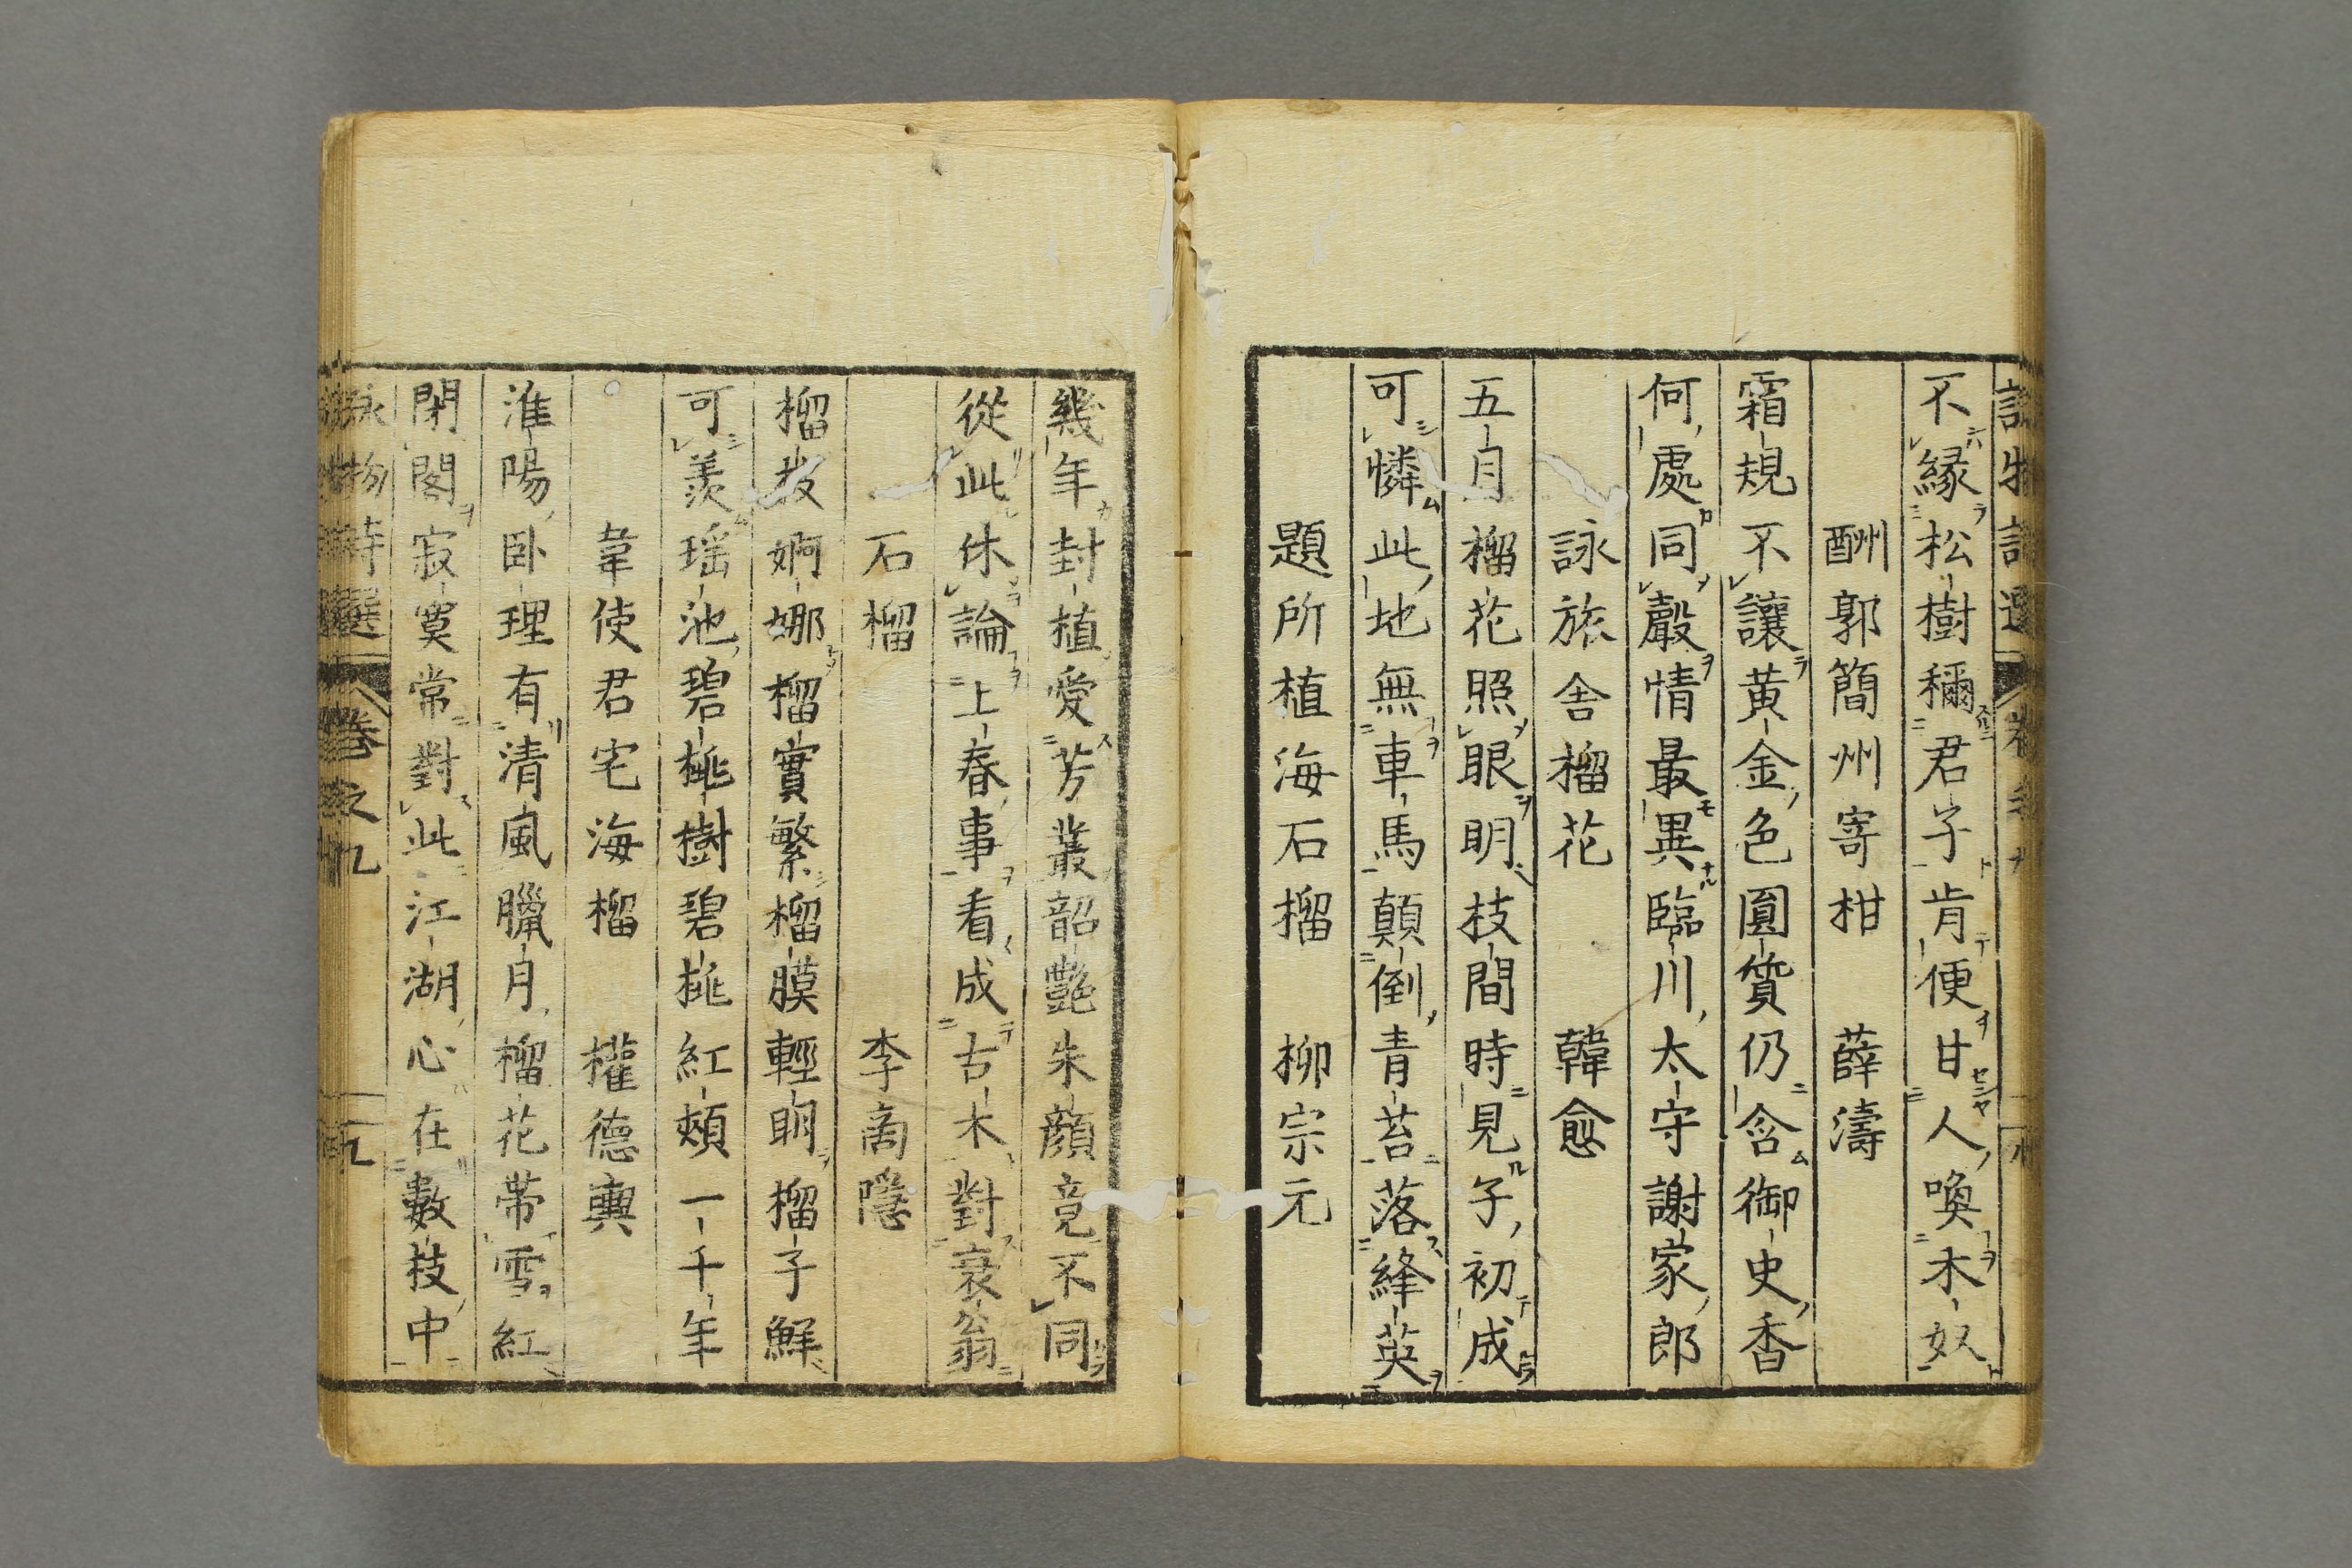 不縁松樹穪君子肯便甘人喚木奴
酬郭簡州寄柑　薛濤
霜規不讓黄金色圓質仍含御史香
何處同聲情最異臨川太守謝家郎
詠旅舎榴花　韓愈
五月榴花照眼明枝間時見子初成
可憐此地無車馬顛倒青苔落絳英
題所植海石榴　柳宗元
幾年封植愛芳叢韶艶朱顔竟不同
從此休論上春事看成古木對衰翁
石榴　李商隠
榴枝婀娜榴實繁榴膜輕明榴子鮮
可羨瑶池碧桃樹碧桃紅頰一千年
韋使君宅海榴　權德輿
淮陽卧理有清風臘月榴花帯雪紅
閉閣寂寞常對此江湖心在數枝中
詠物詩選　巻之九　九